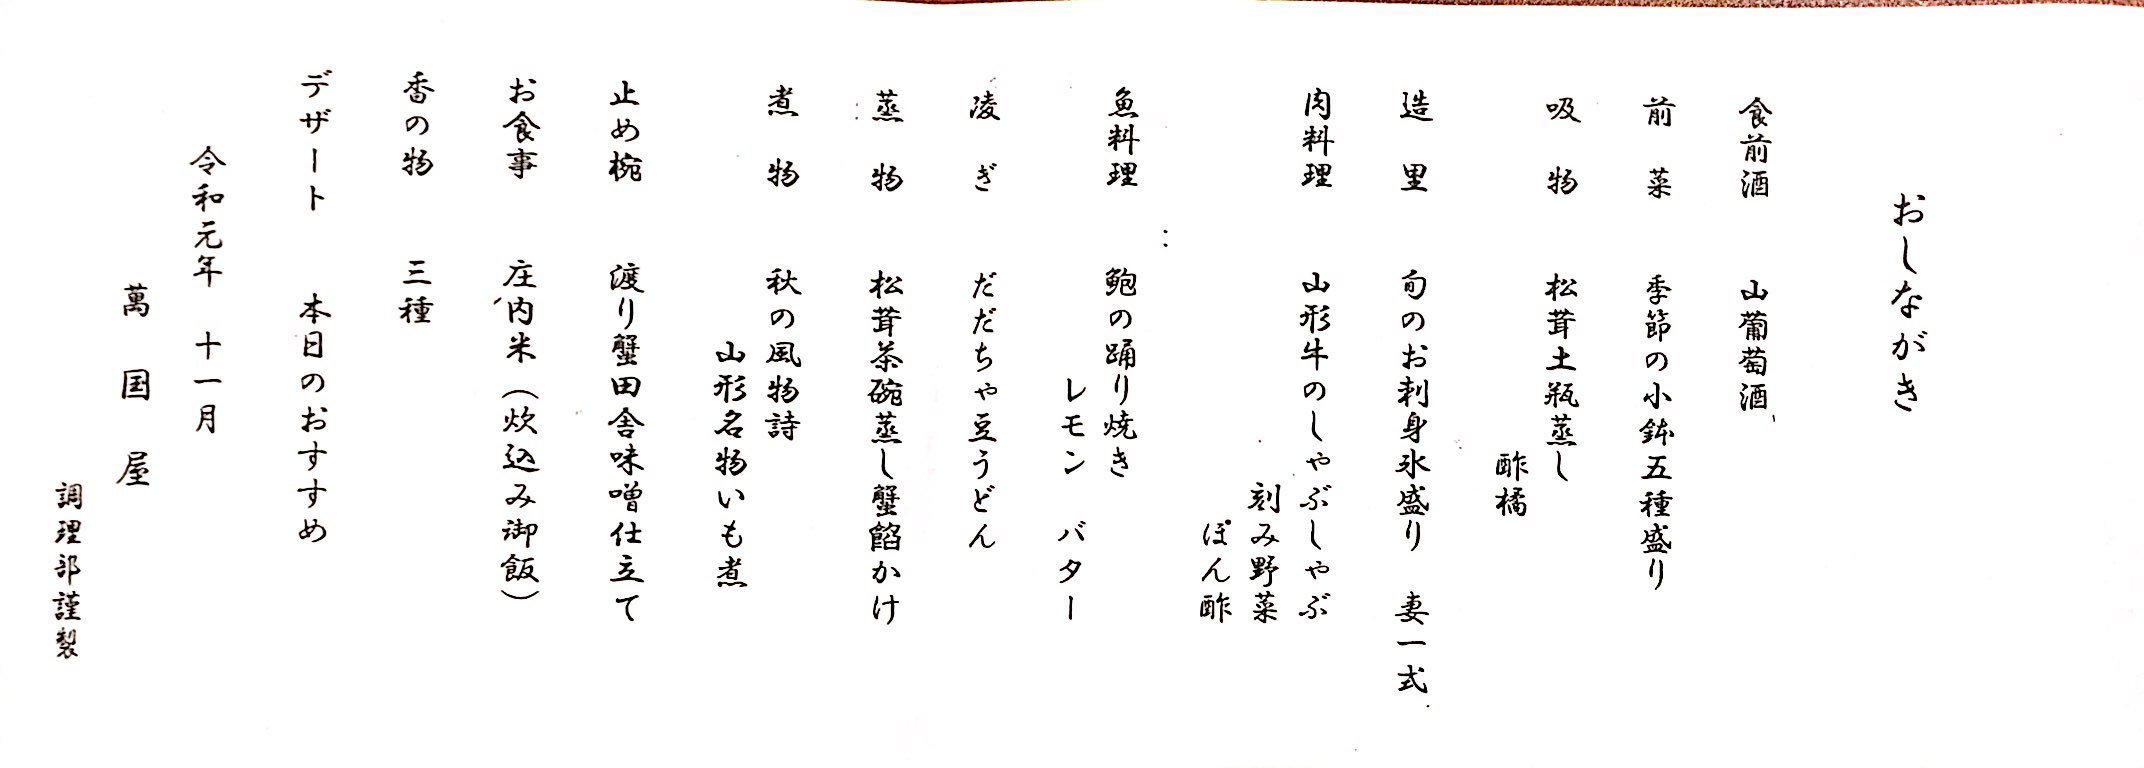 おしながき
食前酒　山葡萄酒
前菜　季節の小鉢五種盛り
吸物　松茸土瓶蒸し
酢橘
造里　旬のお刺身氷盛り　妻一式
肉料理　山形牛のしゃぶしゃぶ
刻み野菜
ぽん酢
魚料理　鮑の踊り焼き
レモン　バター
凌ぎ　だだちゃ豆うどん
蒸物　松茸茶碗蒸し蟹餡かけ
煮物　秋の風物詩
山形名物いも煮
止め椀　渡り蟹田舎味噌仕立て
お食事　庄内米（炊込み御飯）
香の物　三種
デザート　本日のおすすめ
令和元年　十一月
萬国屋
調理部謹製